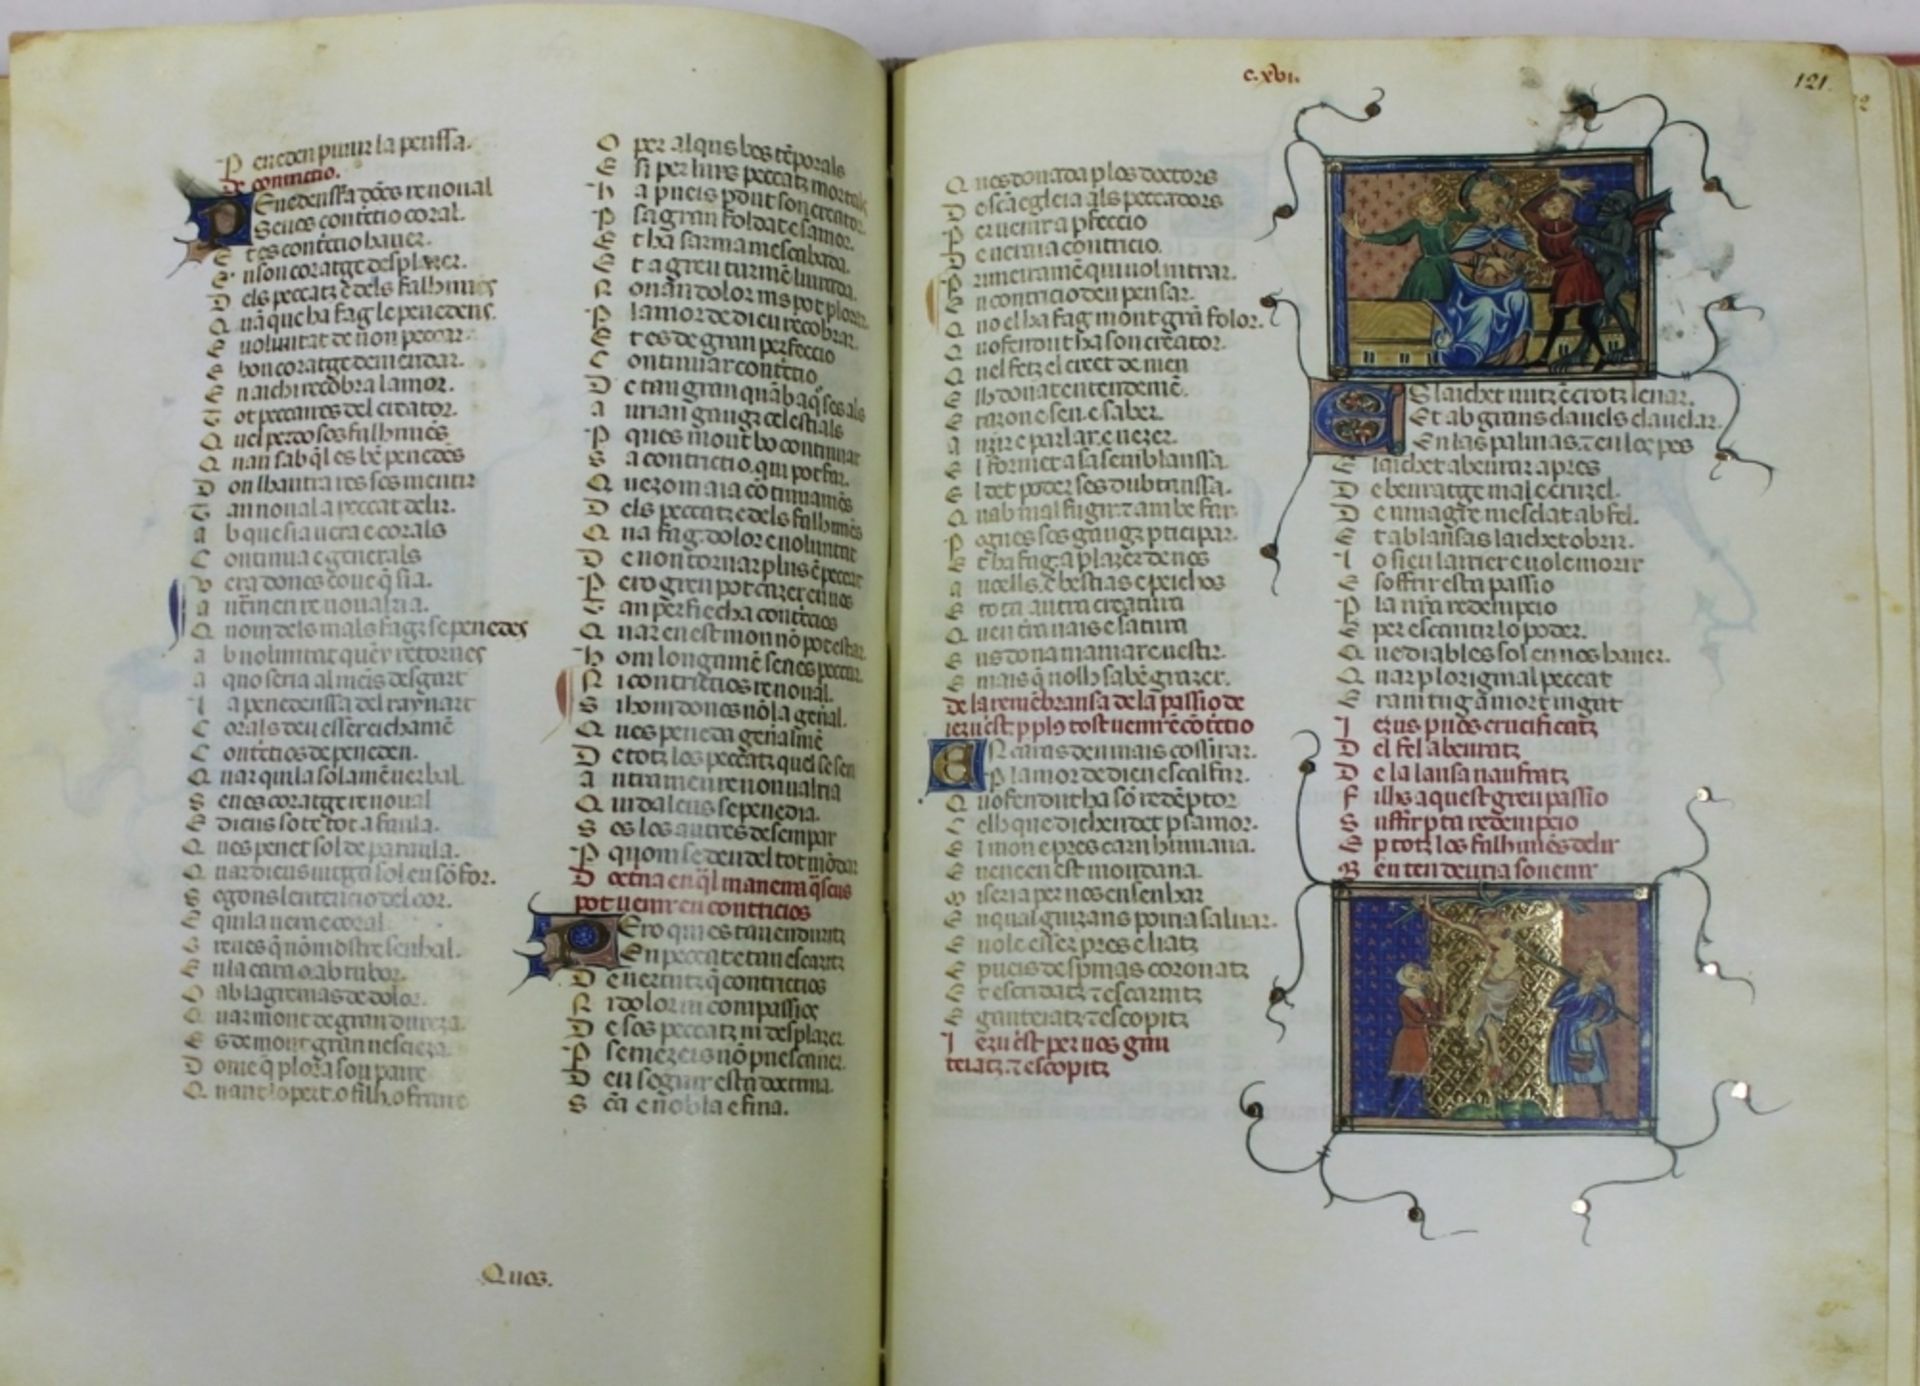 P enedens purir la penssa.
De contricio.
P Enedenssa doncs renoual
S enes contricio coral.
E t es contricio hauer.
E n son coratge desplazer.
D els peccatz e dels falhimens
Q uā que ha fag le penedens.
E uoluntat de non peccar.
E bon coratge demendar.
E naichi recobra lamor.
T ot peccaires del creator.
Q uel perdo sos falhimēs
Q uan sab q̄l es bē penedēs
D on lh autra res ses mentir
T an no ual a peccat delir.
a b que sia uera e corals
C ontinua e generals
V era doncs coue q̄ sia.
a utramen re no ualria.
Q uom dels mals fagz se penedes
a b uoluntat quey retornes
a quo seria al meis desgart
l a penedenssa del raynart
C orals deu esser eichamē
C ontricios de peneden.
Q uar qui la solamē uerbal
S enes coratge re no ual
E dieus so te tot a faula.
Q ues penet sol de paraula.
Q uar dieus iutga sol en sō for.
S egon lentencio del cor.
E qui la uerie coral
S enes q̄ nō mostre senhal.
E n la cara o ab rubor.
O ab lagremas de dolor.
Q uar mont de gran dureza.
E s de mont gran nescieza.
D ome q̄ plora son paire
Q uant lo pert. o filh. o fraire
O per alqus bes tēporals
E si per lurs peccatz mortals
h a pueis pdut son creator.
P sa gran foldat e samor.
E t ha sarma mescabada.
E t a greu turmē liurada.
N on an dolor nis pot plorar
P lamor de dieu recobrar.
E t es de gran perfeccio
C ontinuar contricio.
D e tan gran quā baq̄ sos als
a urian gaugz celestials
P ques mout bo continuar
S a contricio. qui pot far.
Q uez om aia cōtinuamēs
D els peccatz e dels falhimēs
Q ua fag. dolor e uoluntat
D e non tornar plus ē peccat
P ero greu pot cazer en uos
T an perfiecha contricios
Q uar en est mon nō pot estar
h om longamē senes peccar.
N i contricios re no ual.
S i hom doncs nō la genal.
Q ues peneda genalmē
D e totz los peccatz quel se sen
a utramen re no ualria
Q ui dalcus se penedia.
S es los autres desempar
P quom se deu del tot mōdar
D octrina en q̄l manera q̄scus
pot uenir en contricios
P Ero qui es tan enduritz
En peccat e tan escaritz
D e uertutz q̄ contricios
N i dolor ni compassios
D e sos peccatz ni desplazer
P se mezeis nō pues cauer.
D eu segnir esta doctrina.
S cā e nobla e fina.
Quos.
c. xvi.
121.
Q ues donada p los doctors
D e scā egleia als peccadors
P er uenir a pfeccio
D e ueraia contricio.
P rimeiramē qui uol intrar.
E n contricio deu pensar.
Q uo el ha fag mont grā folor.
Q uofendut ha son creator.
Q uel fetz el creet de nien
E lh donat entendemē.
E razon e sen. e saber.
a uzir e parlar. e uezer.
E l formet a sa semblanssa.
E l det poder ses dubtanssa.
Q uab mal fugir. z am be far.
P ogues sos gaugz pticipar.
E t ha fag. a plazer de nos
a uzells. e bestias e peichos
E tota autra creatura
Q uen tā nais e satura
E ns dona maniar e uestir.
E mais q̄ nolh sabē grazir.
de la remēbransa de la passio de
iezu crist p plus tost uenir ē cōtricio
E N cara deu mais cossirar.
P lamor de dieu escalfar.
Q uofendut ha sō redēptor
C elh que dichendet p samor.
E l mon e pres carn humana.
E uenc en est mondana.
M iseria per nos ensenhar
E nqual guizans poiria saluar.
E uolc esser pres e liatz
E pueis despinas coronatz
E t escridatz z escarnitz
E gauteiatz z escopitz
I ezu crist per nos gau
teiatz. z escopitz
E S laichet iutz ē crotz leuar.
Et ab grans clauels clauelar.
En las palmas. z en los pes
E laichet abeurar apres
D e beuratge mal e cruzel.
D e uinagre mesclat ab fel.
E t ab lansas laichet obrir.
l o sieu latzer e uolc morir
E soffrir esta passio
P la nrā redempcio
E per escantir lo poder.
Q ue diables sol en nos hauer.
Q uar p loriginal peccat
E ram tug a mort iutgat
I ezus p uos crucificatz
D el fel abeuratz
D e la lansa naufratz
F ilhs aquest greu passio
S uffir p ta redempcio
E p totz los falhimēs delir
B en ten deuria souenir